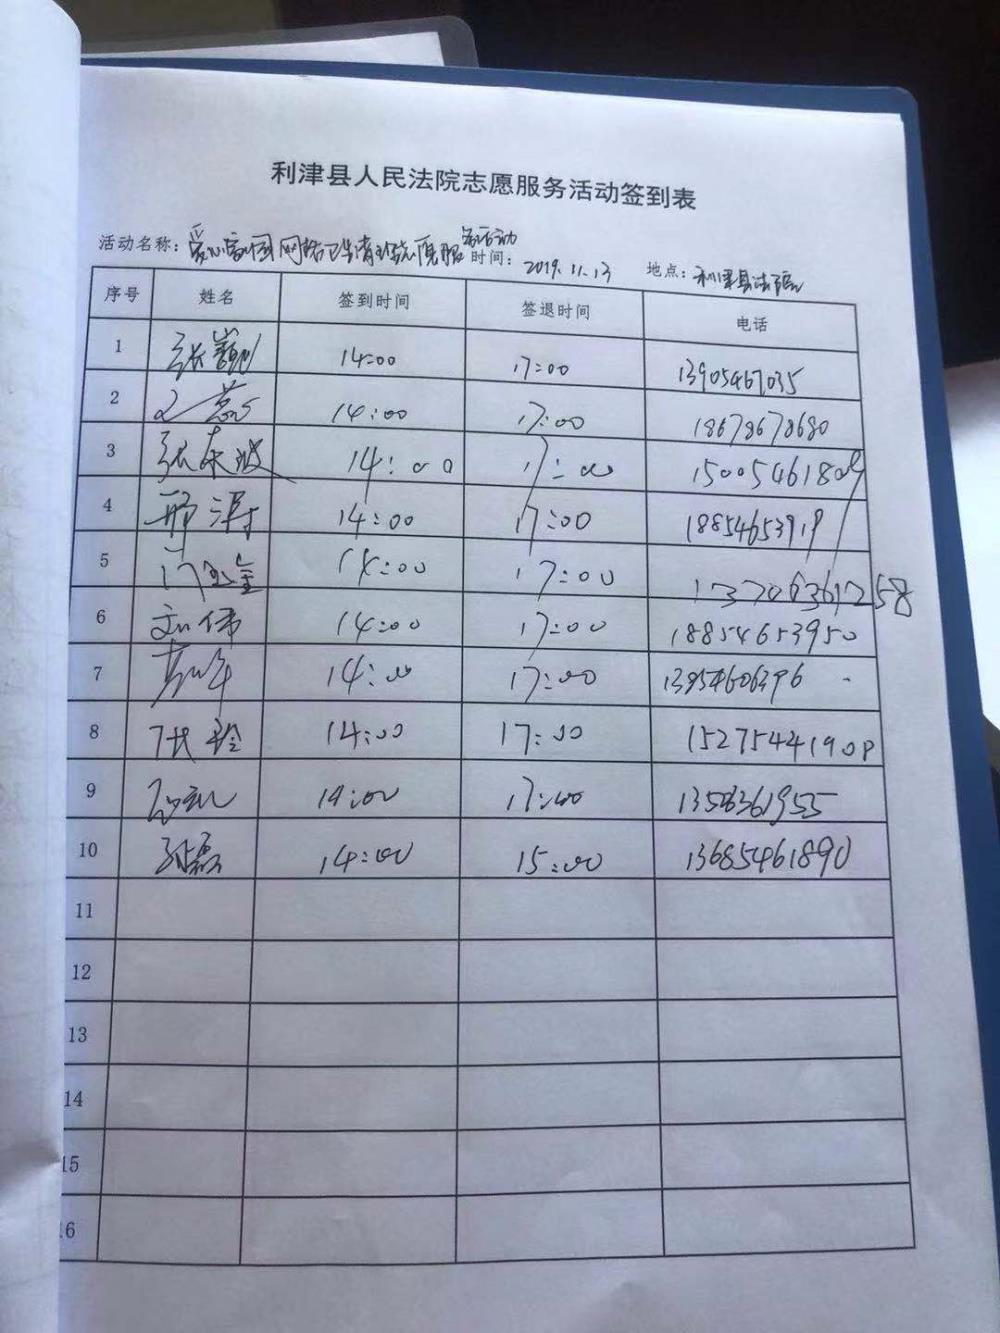 利津县人民法院志愿服务活动签到表
活动名称: 爱心家园网格卫生清理志愿服务活动 时间: 2019.11.13 地点: 利津县法院
序号 姓名 签到时间 签退时间 电话
1 14:00 17:00 13905467035
2 14:00 17:00 18678678680
3 张东波 14:00 17:00 15005461809
4 邢涛 14:00 17:00 18854653919
5 14:00 17:00
6 刘伟 14:00 17:00 18854653950
7 14:00 17:00 13954606396
8 张玲 14:00 17:00
9 14:00 17:00
10 孙磊 14:00 15:00 13685461890
11
12
13
14
15
16